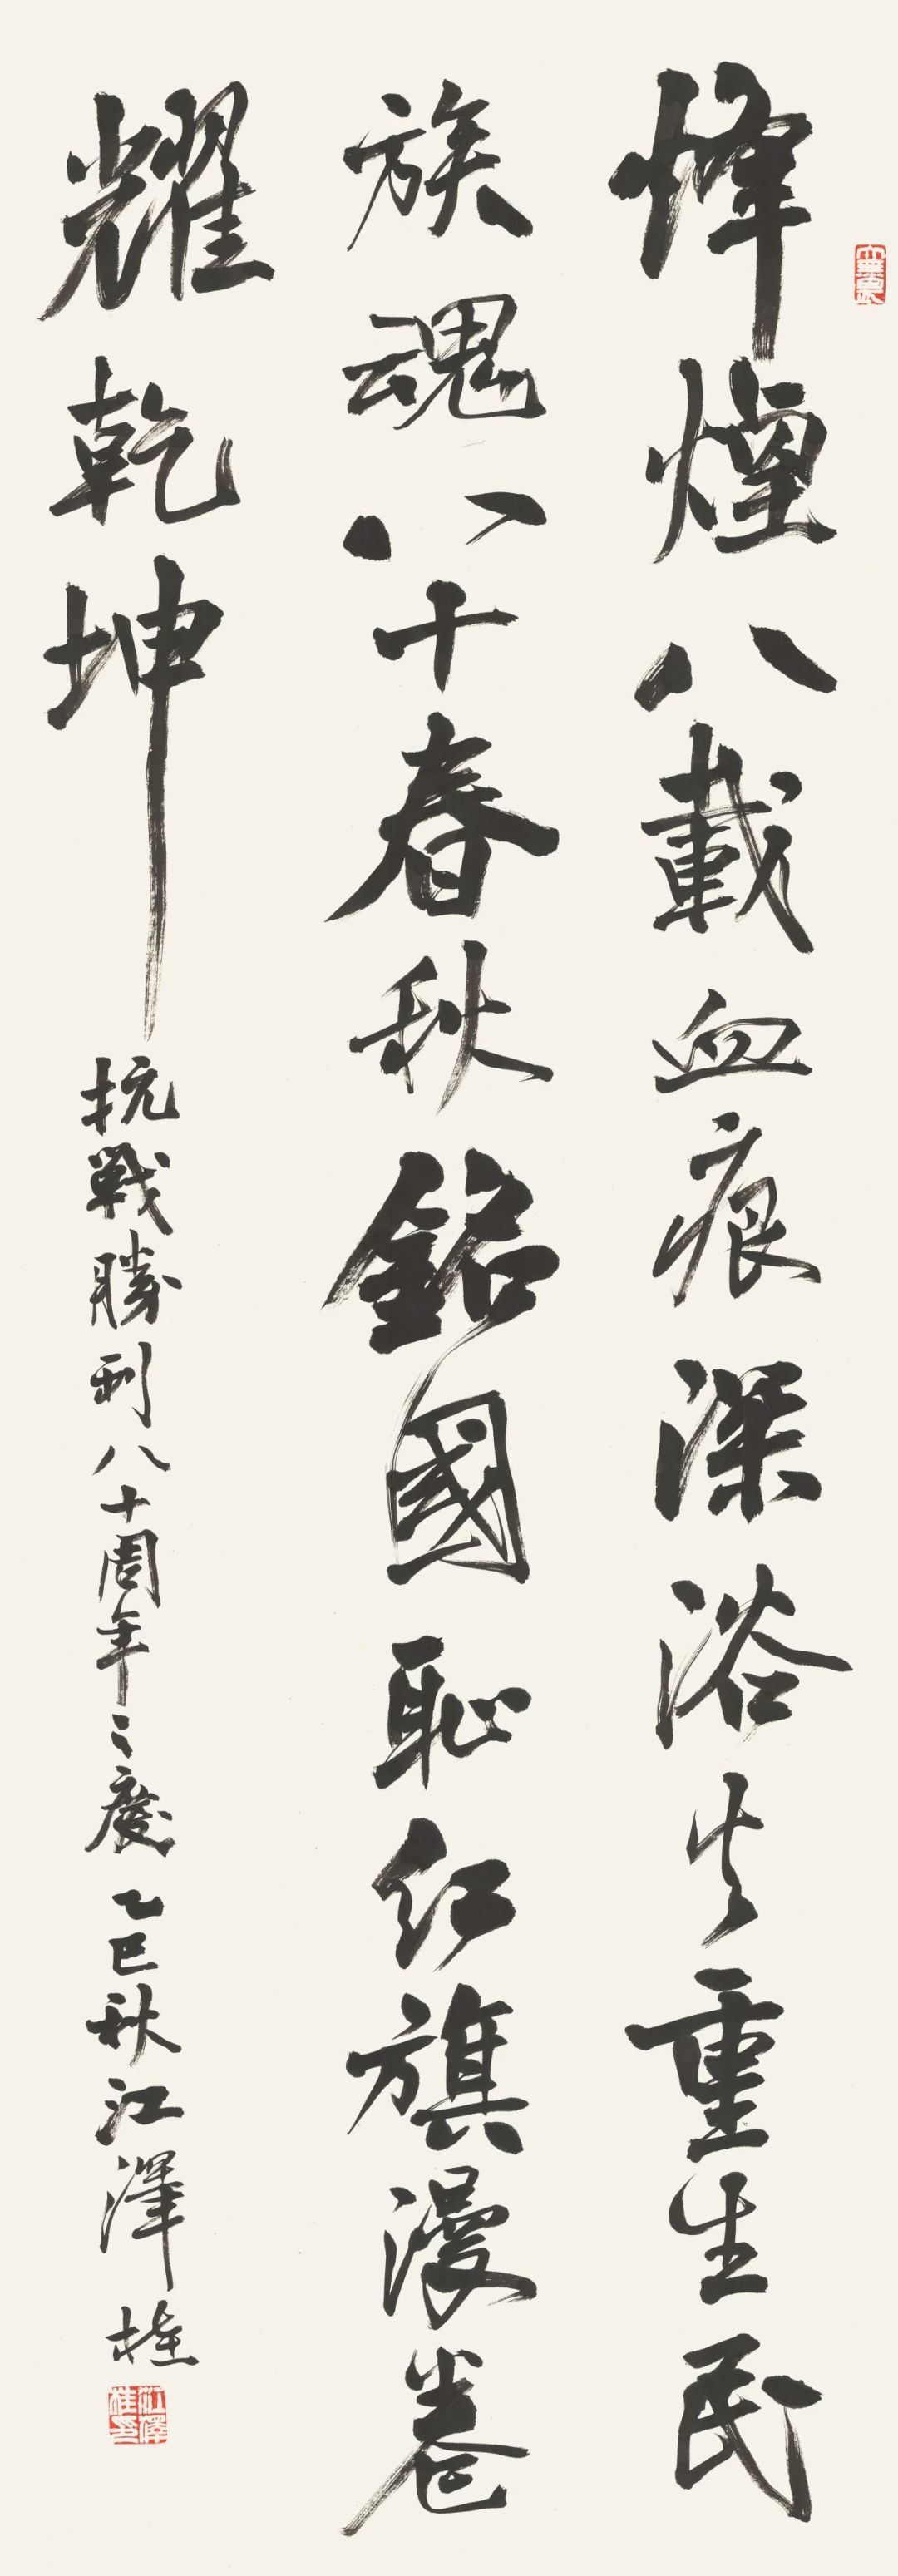 烽煙八載血痕深浴火重生民
族魂八十春秋銘國恥红旗漫卷
耀乾坤
抗戰勝利八十周年之慶乙巳秋江澤桂
江澤桂印